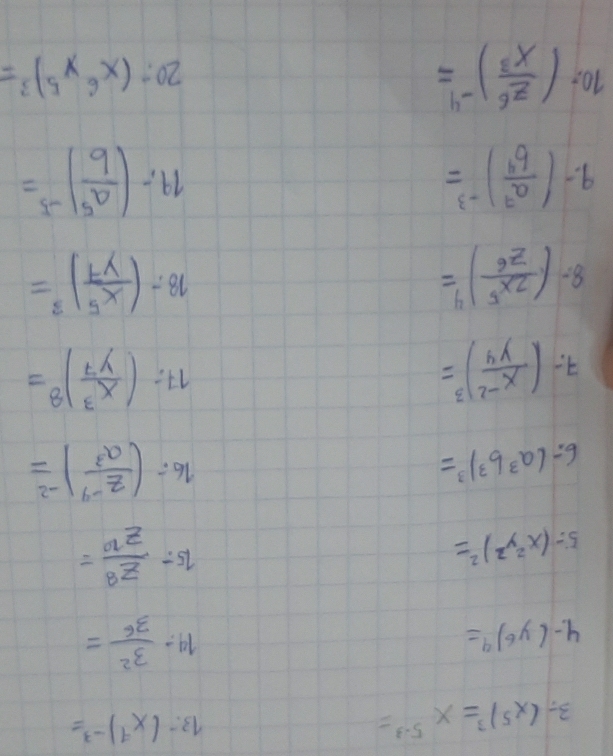 3- (x⁵)³ = x⁵·³ =
4- (y⁶)⁴ =
5- (x²y²)² =
6- (a³b³)³ =
7- (x⁻²/y⁴)³ =
8- (2x⁵/z⁶)⁴ =
9- (a⁷/b⁴)⁻³ =
10- (z⁶/x³)⁻⁴ =
13- (x⁴)⁻³ =
14- 3²/3⁶ =
15- z⁸/z¹⁰ =
16- (z⁻⁴/a³)⁻² =
17- (x³/y⁷)⁸ =
18- (x⁵/y⁷)³ =
19- (a⁵/b)⁻⁵ =
20- (x⁶y⁵)³ =